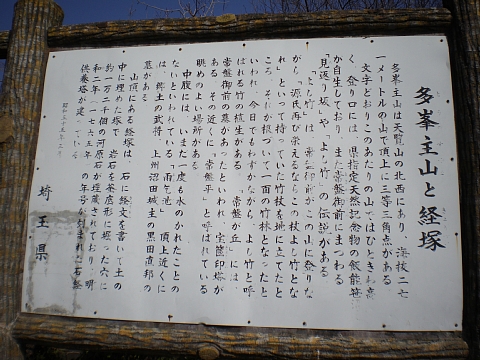 多峯主山と経塚
多峯主山は天覧山の北西にあり、海抜二七
一メートルの山で頂上に三等三角点がある
文字どおりこのあたりの山ではひときわ高
く、登り口には、県指定天然記念物の飯能笹
が自生しており、また常盤御前にまつわる
「見返り坂」や「よし竹」の伝説がある
「よし竹」は、常盤御前がこの山に登りな
がら"源氏再び栄えるならこの杖よし竹とな
れ"といって持っていた竹杖を地に立てたと
ころ、それが根づいて一面の竹林となったと
いわれ、今日でもわずかながら、よし竹と呼
ばれる竹の植生がある。「常盤が丘」には、
常盤御前の墓があったといわれ、宝篋印塔が
ある。その近くに「常盤平」と呼ばれている
眺めのよい場所がある
中腹にはいまだ一度も水のかれたことの
ないといわれている「雨乞池」、頂上近くに
は、郷土の武将、上州沼田城主の黒田直邦の
墓がある。
山頂にある経塚は、石に経文を書いて土の
中に埋めた塚で、岩石を釜底形に堀った穴に
約一万二千個の河原石が埋蔵されており、明
和二年(一七六五年)の年号が刻まれた石経
供養塔が建っている
埼玉県